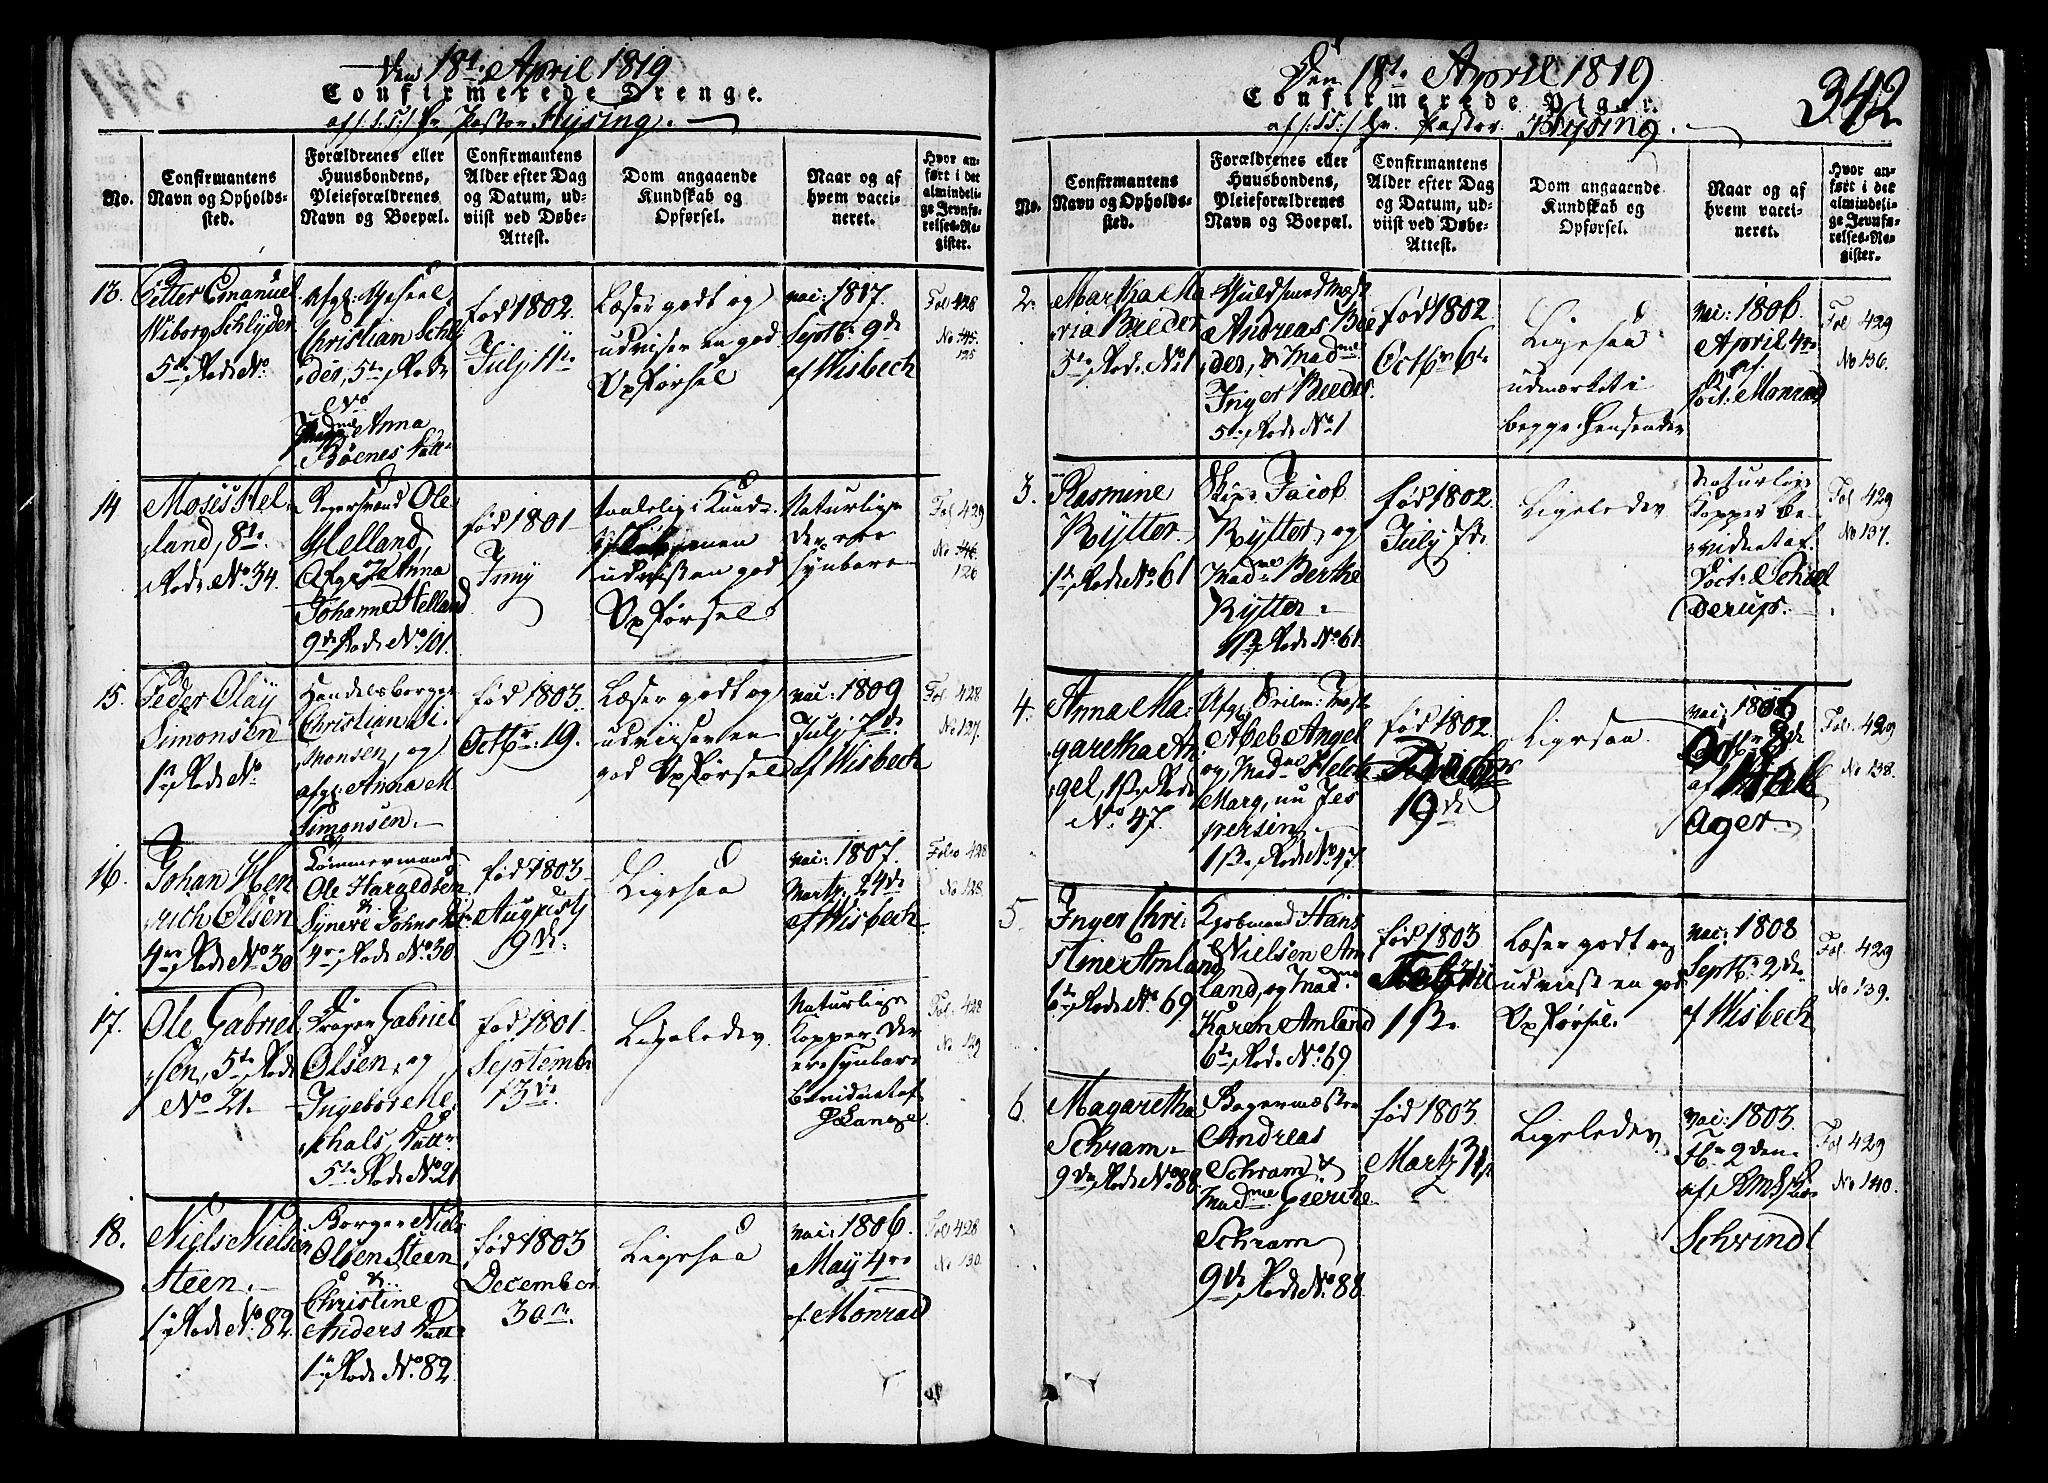 Den 18de April 1819
Confirmerede Drenge.
af S: T: Hr Pastor Hysing.
No.
Confirmantens
Navn og Opholds-
sted.
Forældrenes eller
Huusbondens,
Pleieforældrenes
Navn og Boepæl.
Confirmantens
Alder efter Dag
og Datum, ud-
viist ved Døbe-
Attest.
Dom angaaende
Kundskab og
Opførsel.
Naar og af
hvem vacci-
neret.
Hvor an-
ført i det
almindeli-
ge Jevnfø-
relses-Re-
gister.
13.
Petter Emanuel
Wiborg Schlyder
5te Rode No
Christian Schly
der, 5te Rode
No
Madme Anna
Bøenes Datt.
fød 1802.
July 11te
Læser godt og
udviser en god
Opførsel
vac: 1817.
Septb: 9de
af Wisbech
Fol 428
No 145.
125
14
Moses Hel
land, 8de
Rode No. 34.
Ole
Helland,
Afg: Anna
Johanne Helland
9de Rode No. 101.
fød 1801
Juny
udviist en god
Opførsel
Naturlige
der ere
synbare
Fol 429
No 146.
126
15.
Peder Olay
Simonsen
1ste Rode No
Handelsborger
Christian Si
monsen, og
afg: Anna M.
Simonsen.
fød 1803.
Octbr: 19.
Læser godt og
udviiser en
god Opførsel
vac: 1809
July 7de
af Wisbech
Fol. 428
No 127.
16.
Johan Hen
rich Olsen
4re Rode No 30
Tømmermand
Ole Haraldsen
&
Syneve Johns D.
4re Rode No. 30
fød 1803
Augusty
9de.
Ligesaa
vac: 1807.
Martz 24de
af Wisbech
Folio 428
No 128
17.
Ole Gabriel
sen, 5te Rode
No 21.
Drager Gabriel
Olsen, og
Ingebor Me
chals Datt
5te Rode No. 21
fød 1801
September
13de.
Ligeledes
Naturlige
Kopper der
ere synbare
bevidnet af
Lange.
Fol. 428
No 129
18.
Niels Nielsen
Steen.
1ste Rode No. 82
Borger Niels
Olsen Steen
&
Christine
Anders Datt
1ste Rode No. 82
fød 1803
December
30te.
Ligesaa
vac: 1806.
May 4re
af Monrad
Fol 428
No 130.
342
Den 18de April 1819
Confirmerede Piger.
af S: T: Hr. Pastor Hysing.
No.
Confirmantens
Navn og Opholds-
sted.
Forældrenes eller
Huusbondens,
Pleieforældrenes
Navn og Boepæl.
Confirmantens
Alder efter Dag
og Datum, ud-
viist ved Døbe-
Attest.
Dom angaaende
Kundskab og
Opførsel.
Naar og af
hvem vacci-
neret.
Hvor an-
ført i det
almindeli-
ge Jevnfø-
relses-Re-
gister.
2.
Martha Ma
ria Breder
5te Rode No 1
Andreas Bre
der, & Madme
Inger Breder
5te Rode No. 1
fød 1802
Octbr 6te
Ligesaa
udmerket i
begge Henseender
vac: 1806
April 4re
af
Doct: Monrad
Fol 429
No 136.
3.
Rasmine
Rytter
1ste Rode No. 61
Skip: Jacob
Rytter, og
Madme Berthe
Rytter.
1ste Rode No. 61.
fød 1802.
July 7de
Ligeledes
Naturlige
Kopper be
vidnet af
Doct: Schiel
derups.
Fol 429
No 137.
4.
Anna Ma
garetha An
gel, 1ste Rode
No 47.
Abeb Angel
og Madme
Marg, nu Jes
persen
1ste Rode No 47
fød 1802
19de
Ligesaa
af
ager.
Fol. 429
No 138.
5
Inger Chri
stine Amland
6te Rode No. 69
Kjøbmand Hans
Nielsen Am
land, og Madme
Karen Amland
6te Rode No. 69
fød 1803
1ste.
Læser godt og
udviist en god
Opførsel.
vac: 1808
Septbr 2den
af Wisbech
Fol. 429
No 139.
6
Magaretha
Schram.
9de Rode No. 88.
Bagermester
Andreas
Schram &
Madme Gierthe
Schram
9de Rode No. 88
fød 1803
Martz 31te
Ligeledes
vac: 1803.
2den
af
Schvindt
Fol 429
No 140.